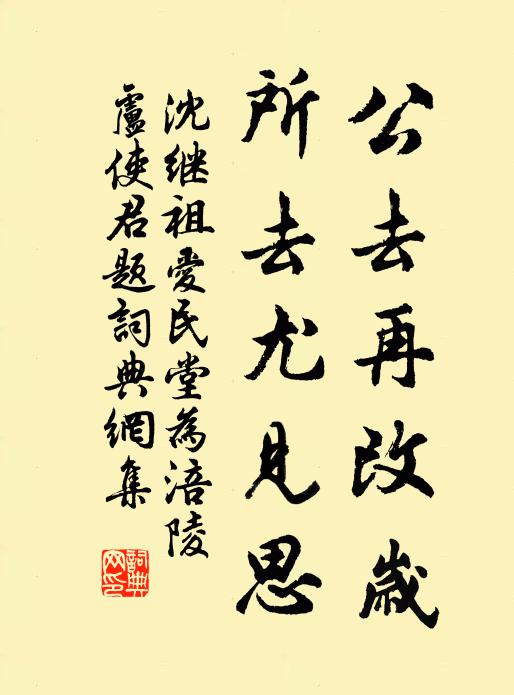 公去再改歲
所去尤見思
沈继祖愛民堂為涪陵
盧使君題詞典網集
詞典网印